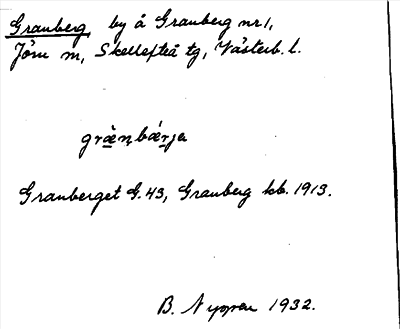 Granberg by å Granberg nr 1,
Jörn m, Skellefteå tg, Västerb. l.
græ̀n̥bǽrja
Granberget G. 43, Granberg kb. 1913.
B. Nygren 1932.